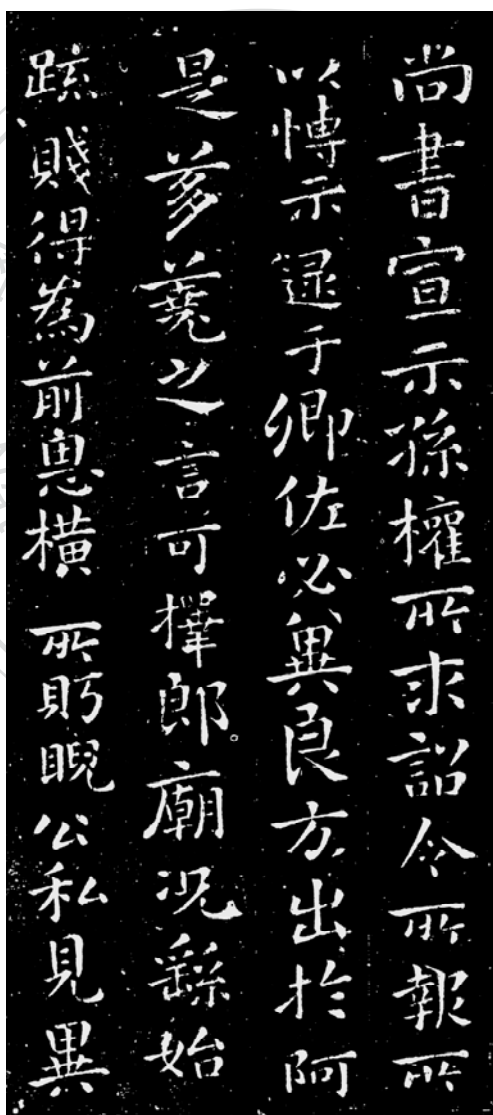 尚書宣示孫權所求詔令所報所
以博示逮于卿佐必冀良方出於阿
是芻蕘之言可擇郎廟況繇始
疏賤得為前恩橫所眄睨公私見異